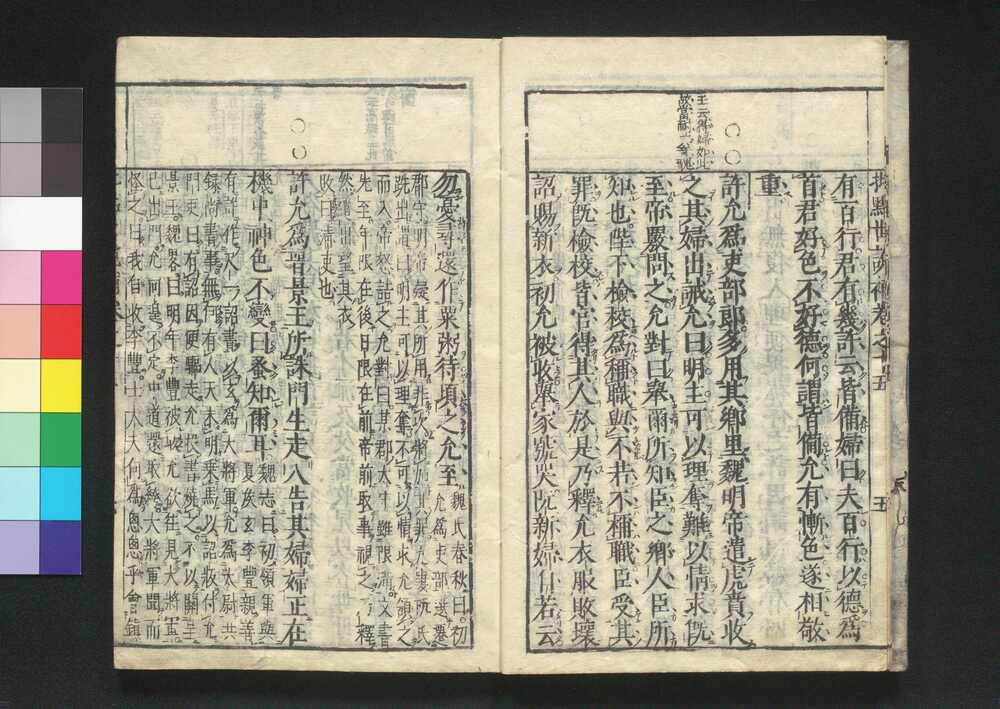 世說新語補卷之十五 五
有百行君有幾許云皆備婦曰夫百行以德爲
首君好色不好德何謂皆備允有慚色遂相敬
重
許允爲吏部郎多用其鄉里魏明帝遣虎賁收
之其婦出誡允曰明主可以理奪難以情求旣
至帝嚴問之允對曰舉爾所知臣之鄉人臣所
知也陛下檢校爲稱職與不若不稱職臣受其
罪旣檢校皆官得其人於是乃釋允衣服敗壞
詔賜新衣初允被收舉家號哭阮新婦自若云
勿憂尋還作粟粥待頃之允至
魏氏春秋曰初
允爲吏部選遷
郡守明帝疑其所用非次將加其罪允妻阮氏
跣出謂曰明主可以理奪不可以情求允頷之
而入帝怒詰之允對曰某郡太守雖限滿文書
先至年限在後日限在前帝前取事視之乃釋
然遣出望其衣
敗曰清吏也
許允爲晉景王所誅門生走入告其婦婦正在
機中神色不變曰蚤知爾耳
魏志曰初領軍與
夏侯玄李豐親善
有詐作尺一詔書以玄爲大將軍允爲太尉共
錄尚書事無何有人天未明乘馬以詔版付允
門吏曰有詔因便驅走允投書燒之不以關呈
景王魏畧曰明年李豐被收允欲往見大將軍
已出門允回遑不定中道還取袴大將軍聞而
怪之曰我自收李豐士大夫何爲悤悤乎會鎮